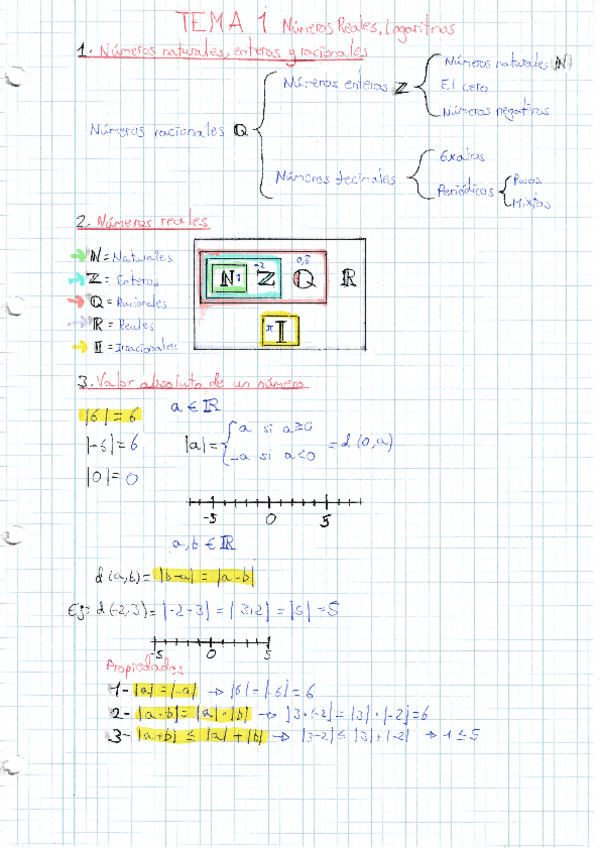 TEMA 1 Números Reales, Logaritmos
1. Números naturales, enteros y racionales
Números racionales Q
Números enteros Z
Números naturales (N)
El cero
Números negativos
Números decimales
Exactos
Periódicos
Puros
Mixtos
2. Números reales
N = Naturales
Z = Enteros
Q = Racionales
R = Reales
I = Irracionales
N 1 Z -2 Q R
π I
3. Valor absoluto de un número
|6| = 6
a ∈ R
|-6| = 6
|a| = { a si a ≥ 0
-a si a < 0
= d (0, a)
|0| = 0
-5 0 5
a, b ∈ R
d (a, b) = |b-a| = |a-b|
Ej: d (-2, 3) = |-2-3| = |3+2| = |5| = 5
-5 0 5
Propiedades
1- |a| = |-a| → |6| = |-6| = 6
2- |a·b| = |a|·|b| → |3·(-2)| = |3|·|-2| = 6
3- |a+b| ≤ |a|+|b| → |3-2| ≤ |3|+|-2| → 1 ≤ 5